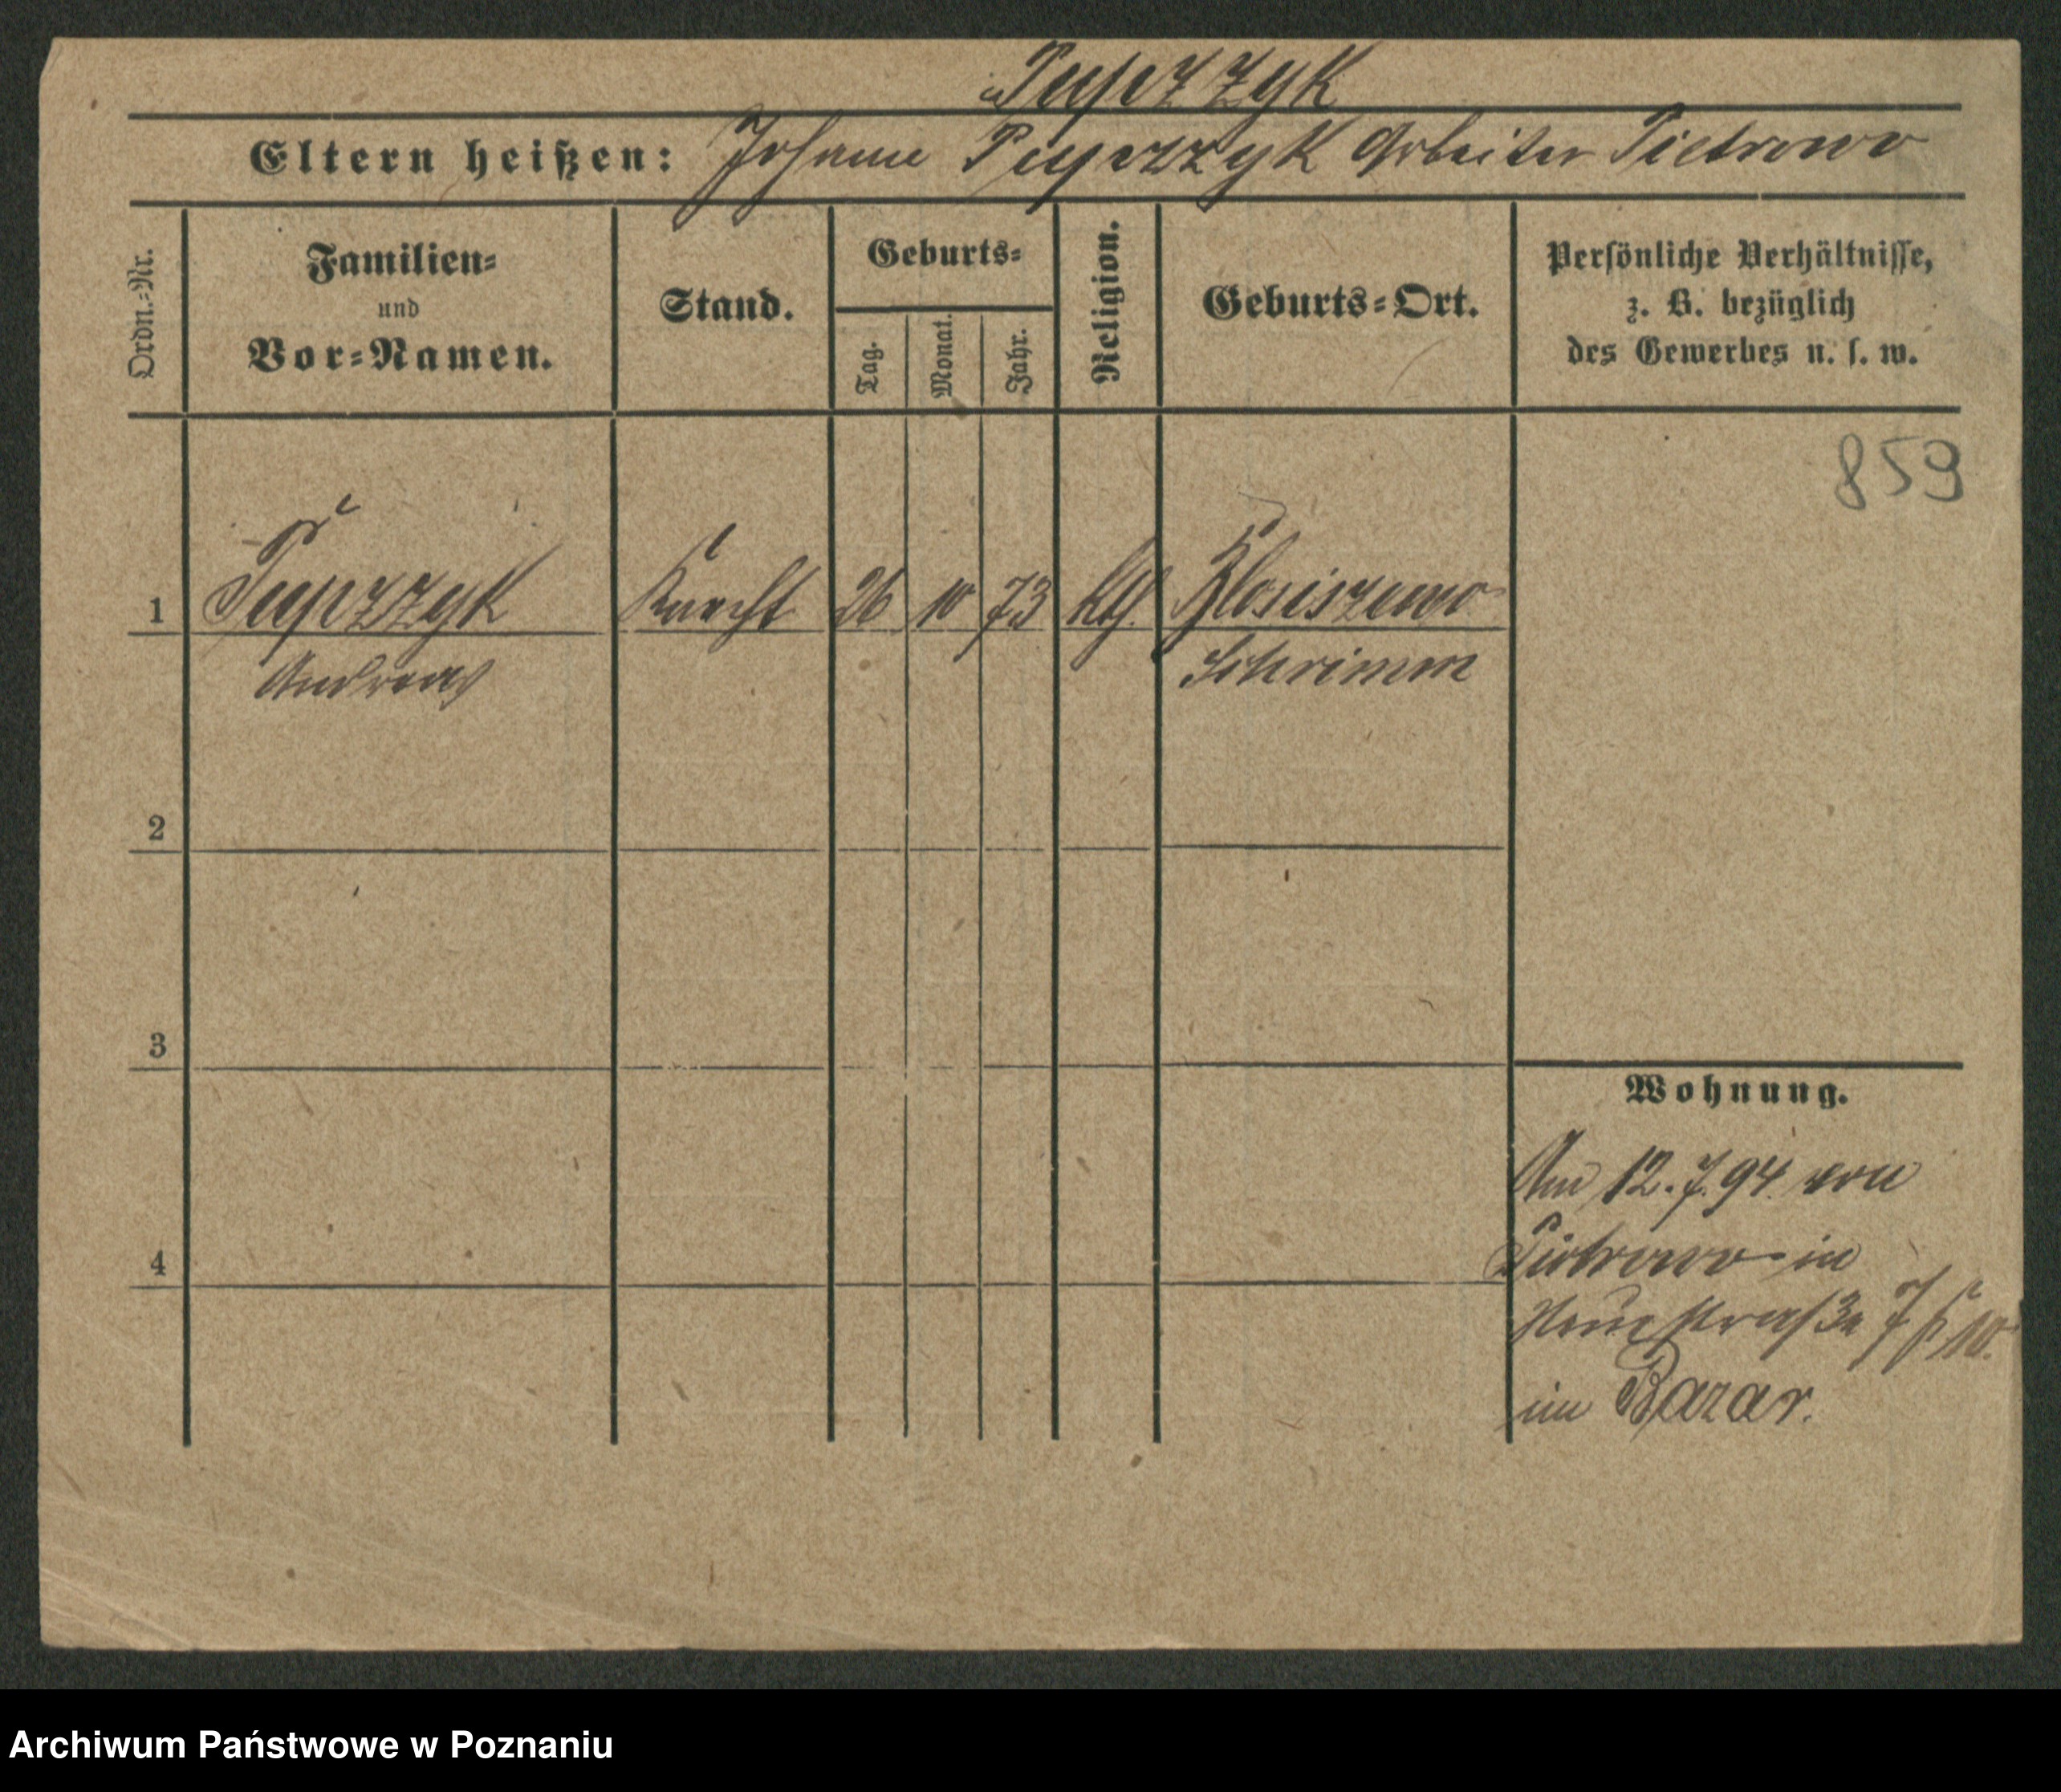 Puprzzyk
Eltern heißen: Johann Puprzzyk Arbeiter Pietrowo
Ordn.-Nr.
Familien-
und
Vor-Namen.
Stand.
Geburts-
Tag.
Monat.
Jahr.
Religion.
Geburts-Ort.
Persönliche Verhältnisse,
z. B. bezüglich
des Gewerbes u. s. w.
859
1 Knecht 26 10 73 kth.
Andreas Schrimm
2
3
4
Wohnung.
Am 12.7.94. von
Pietrowo in
Neue straße 7/10.
im Bazar.
Archiwum Państwowe w Poznaniu